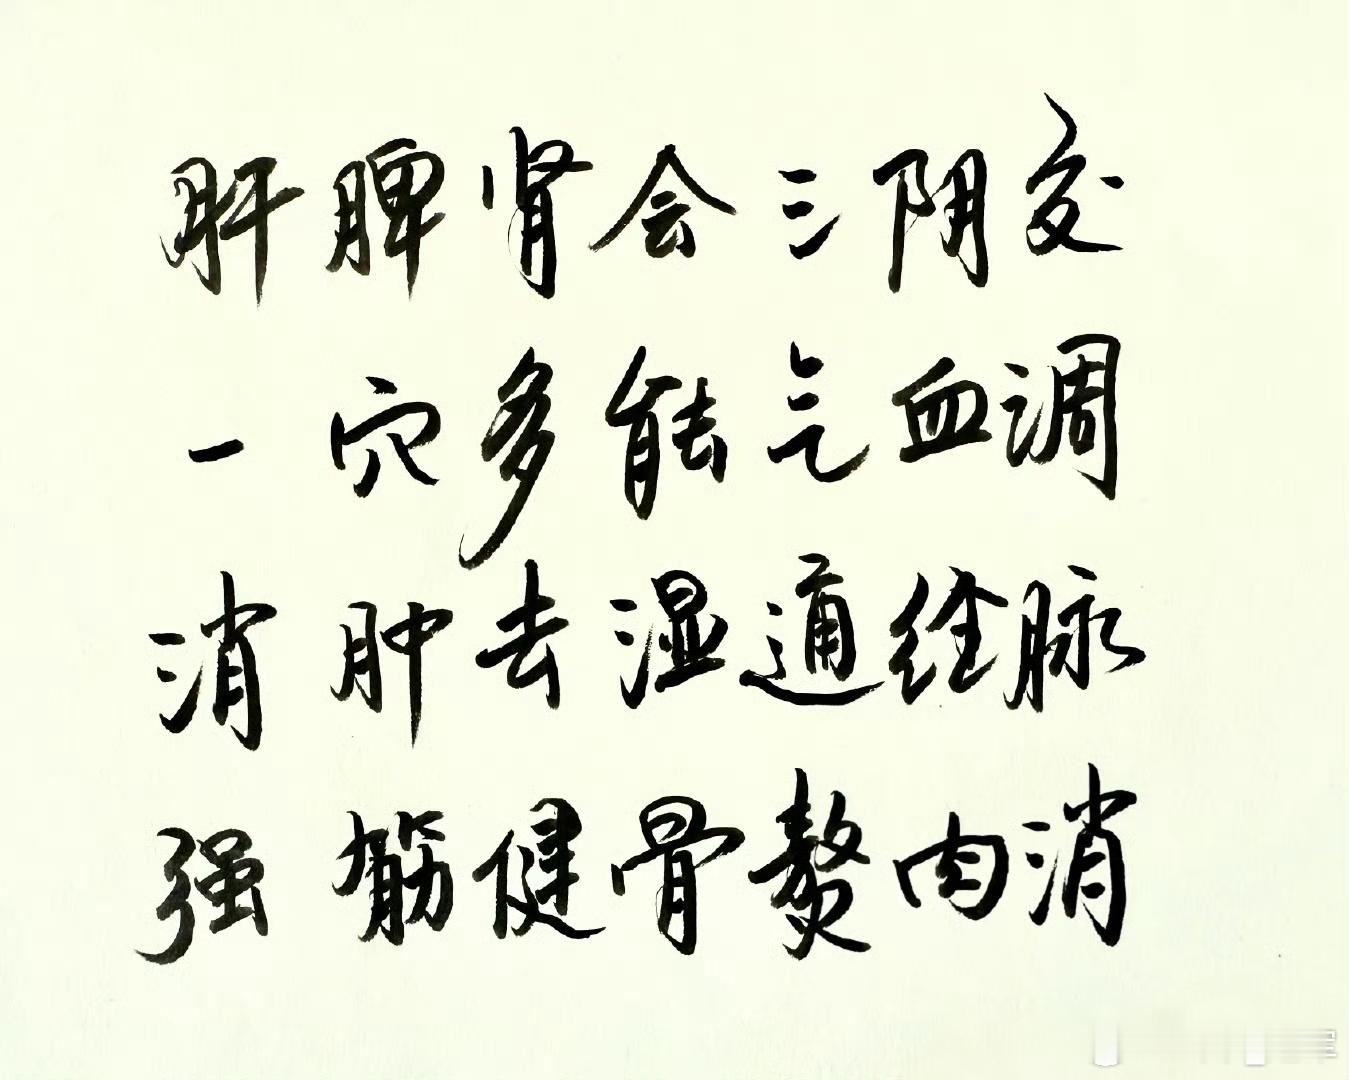 肝脾肾会三阴交
一穴多能气血调
消肿去湿通经脉
强筋健骨赘肉消